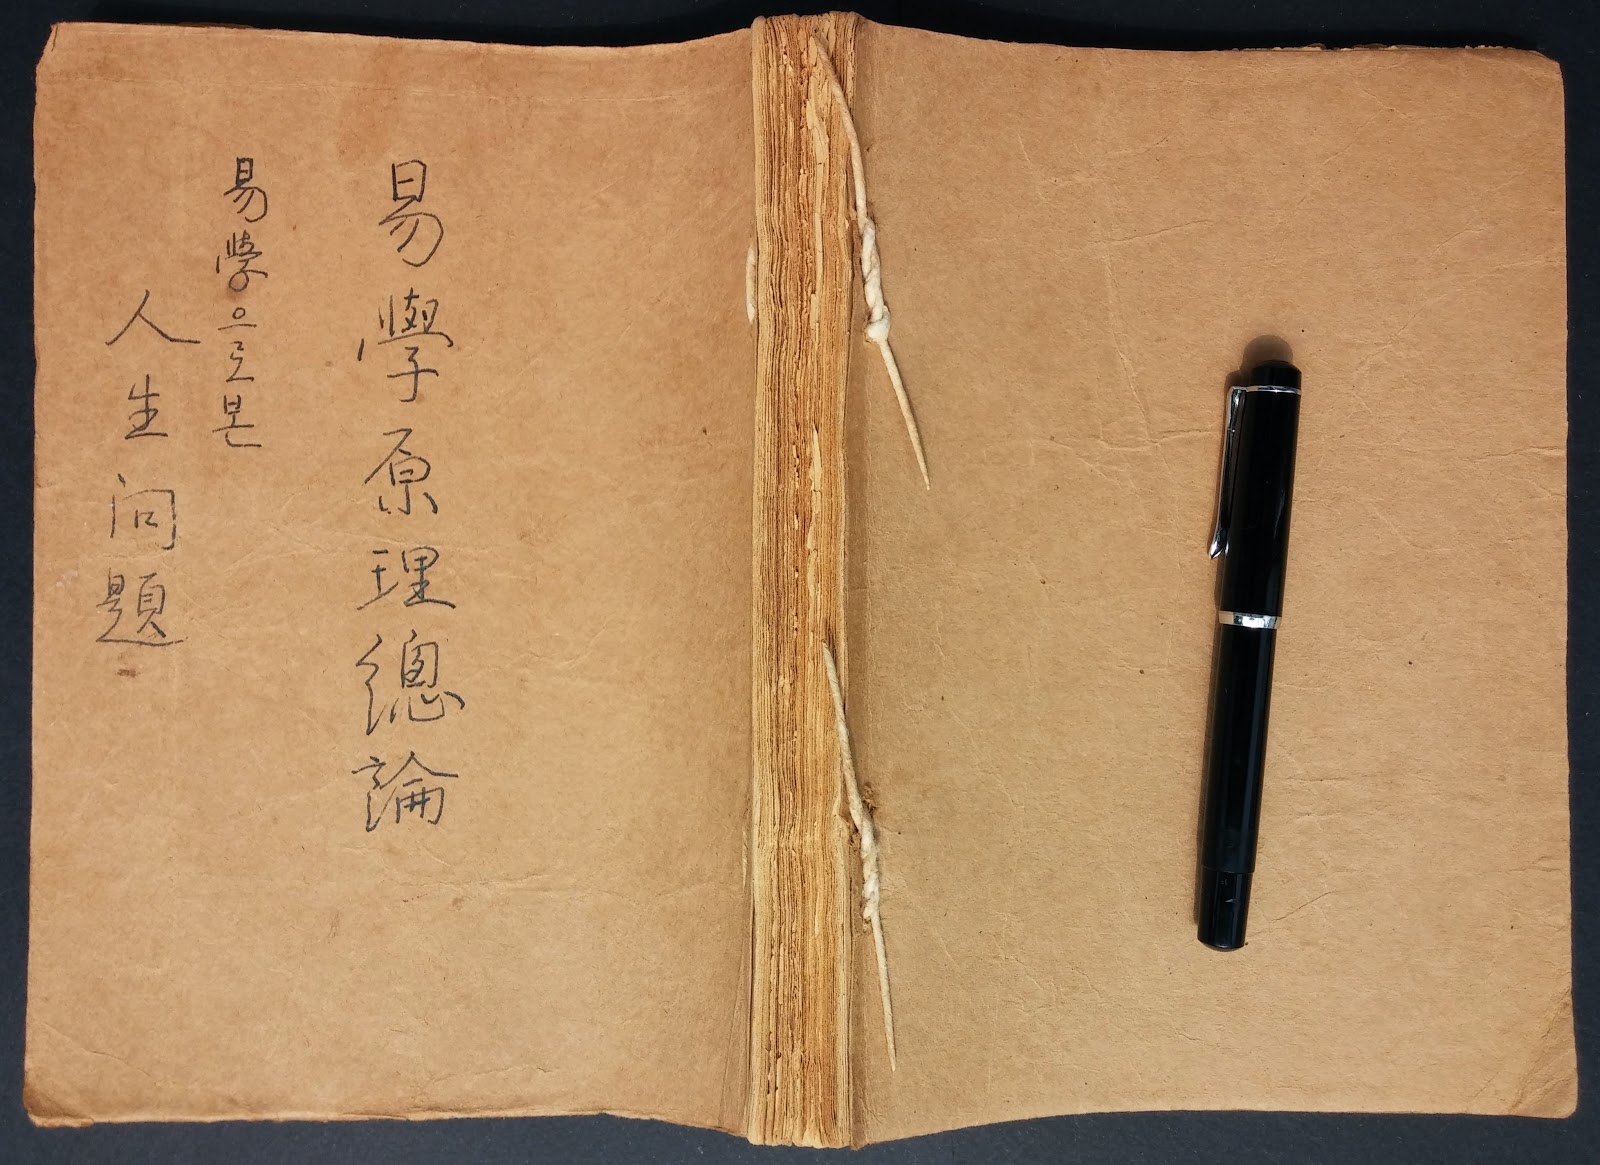 易學原理總論
易學으로본
人生问題